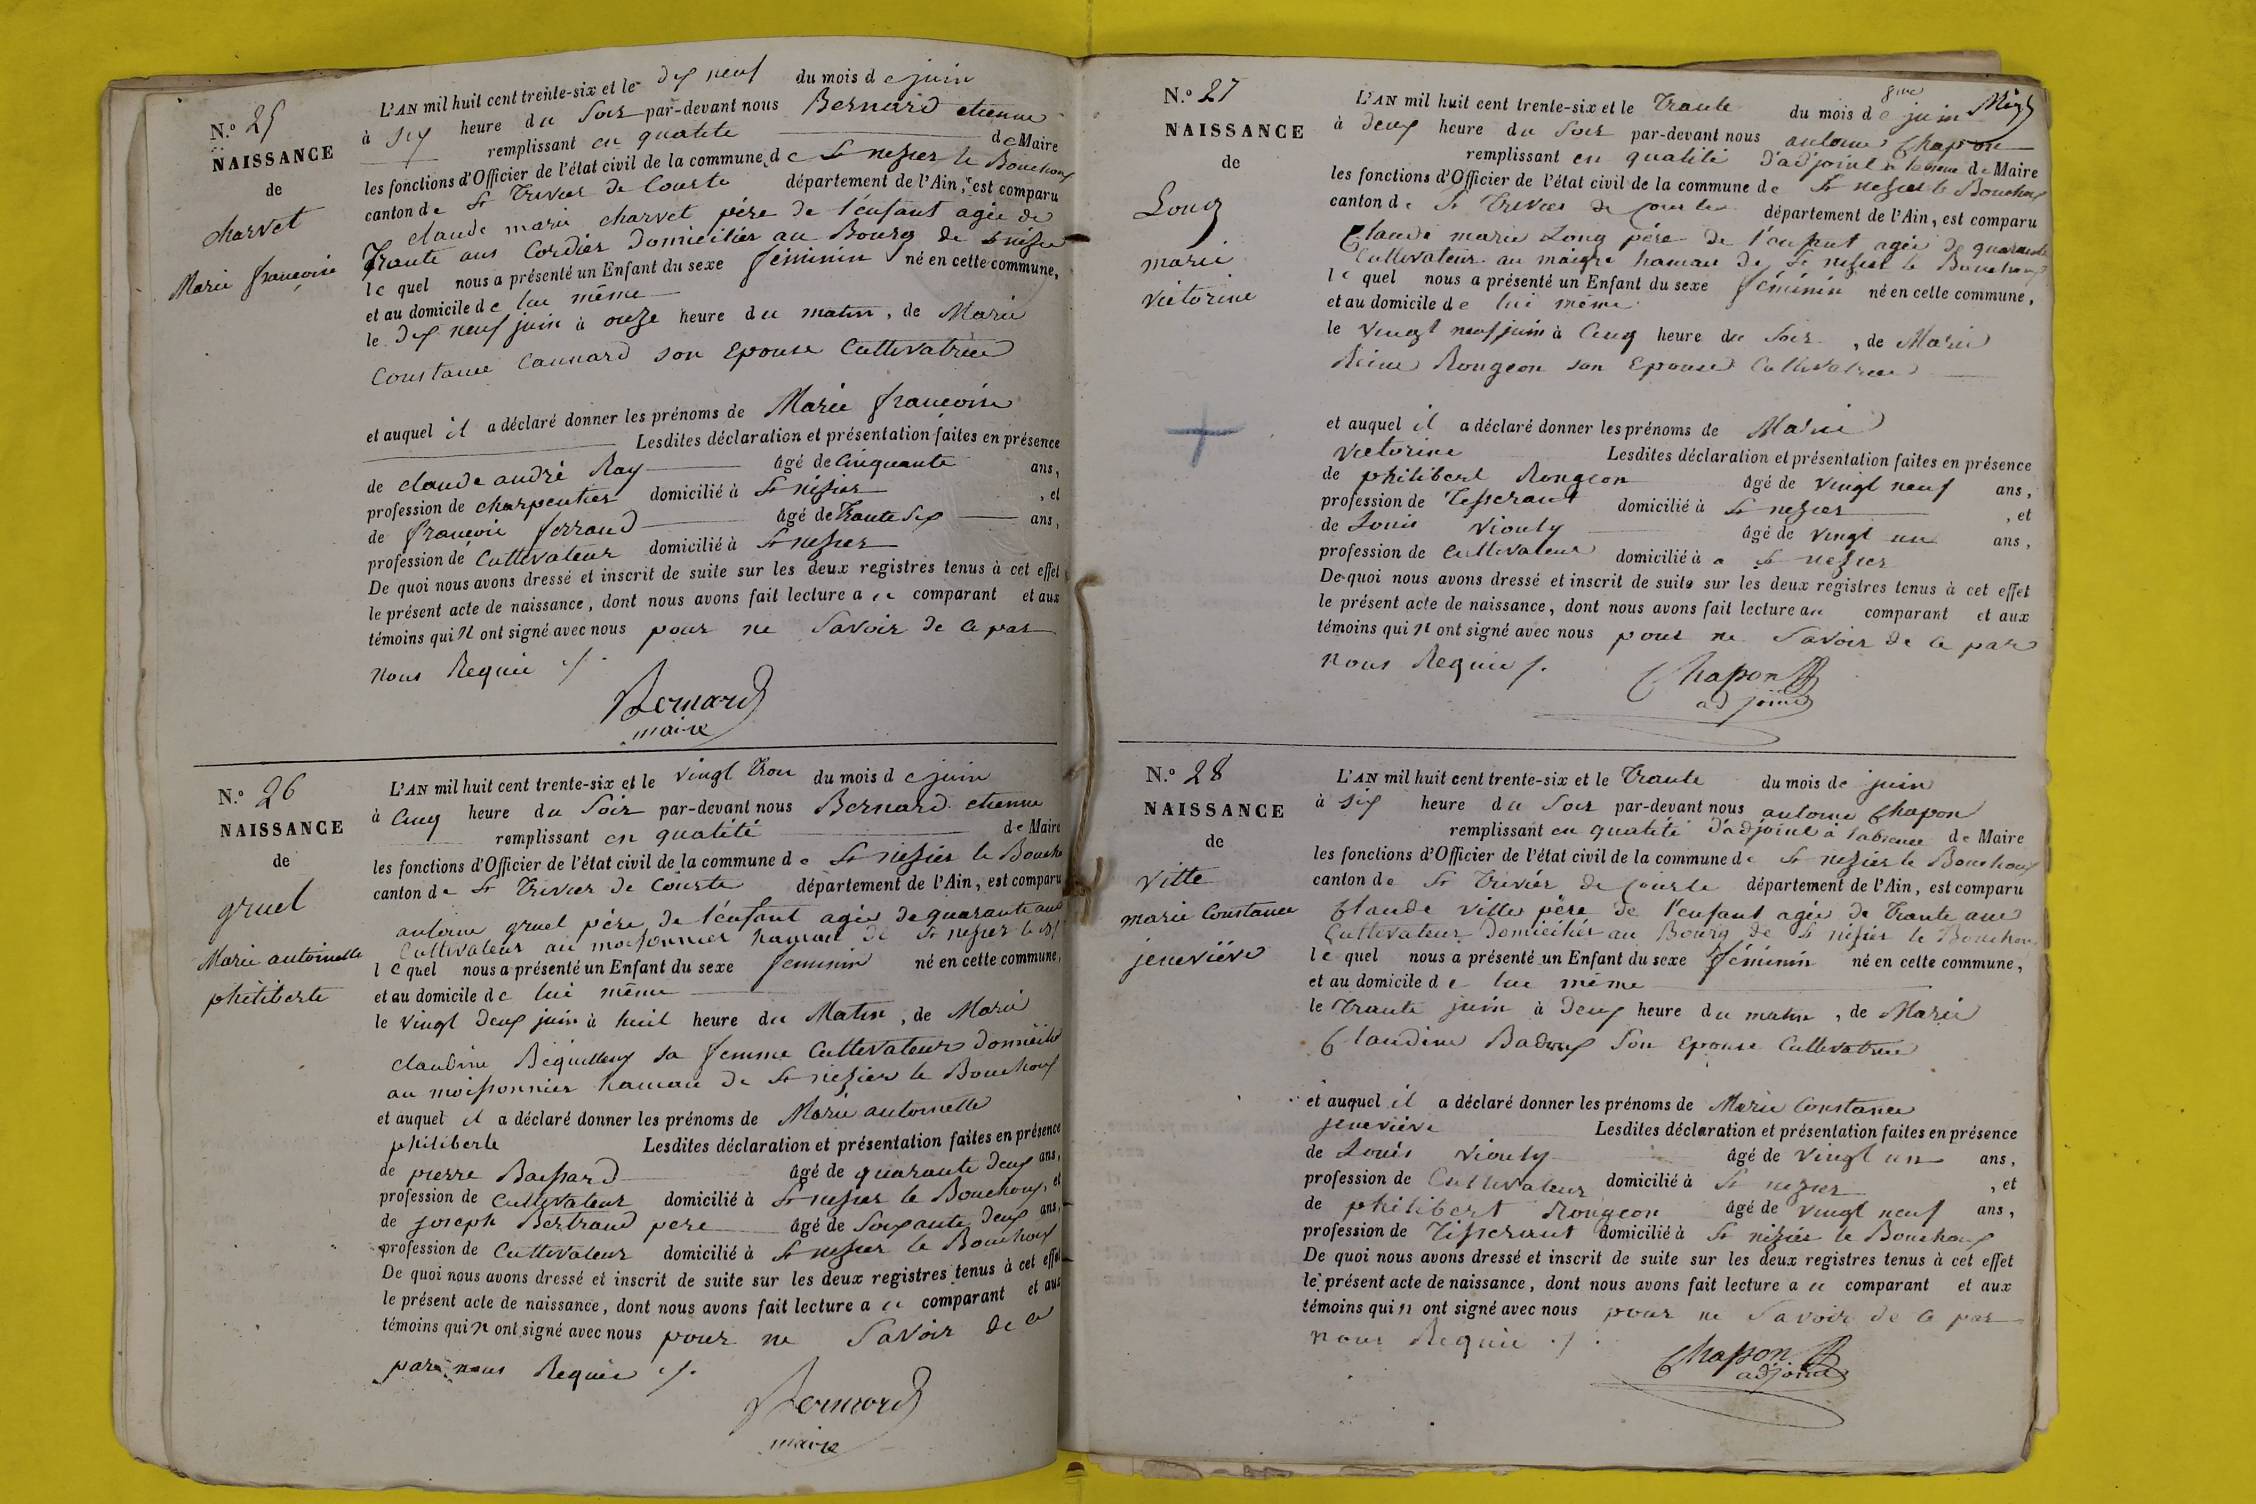 N.° 25
NAISSANCE
de
charvet
Marie françoise
L'AN mil huit cent trente-six et le dix neuf du mois de juin
à six heure du Soir par-devant nous Bernard etienne
remplissant en qualité de Maire
les fonctions d'Officier de l'état civil de la commune de St nezier le Bouchoux
canton de St Trivier de Courte département de l'Ain, est comparu
claude marie charvet père de l'enfant agée de
Trante ans Cordier Domicilier au Bourg de St nizier
le quel nous a présenté un Enfant du sexe féminin né en cette commune,
et au domicile de lui même
le dix neuf juin à onze heure du matin, de Marie
Constance Cannard son Epouse Cultivatrice
et auquel il a déclaré donner les prénoms de Marie françoise
Lesdites déclaration et présentation faites en présence
de claude andré Ray âgé de Cinquante ans,
profession de charpentier domicilié à St nizier, et
de françois ferrand âgé de Trante Six ans,
profession de Cultivateur domicilié à St nezier
De quoi nous avons dressé et inscrit de suite sur les deux registres tenus à cet effet
le présent acte de naissance, dont nous avons fait lecture au comparant et aux
témoins qui n ont signé avec nous pour ne Savoir de ce par
nous Requie ./.
Bernard
maire
N.° 26
NAISSANCE
de
gruel
Marie antoinette
philiberte
L'AN mil huit cent trente-six et le vingt Trois du mois de juin
à Cinq heure du Soir par-devant nous Bernard etienne
remplissant en qualité de Maire
les fonctions d'Officier de l'état civil de la commune de St nezier le Boucho
canton de St Trivier de Courte département de l'Ain, est comparu
antoine gruel père de l'enfant agée de quarante ans
Cultivateur au moissonnier hamau de St nezier le B
le quel nous a présenté un Enfant du sexe feminin né en cette commune,
et au domicile de lui même
le vingt deux juin à huit heure du Matin, de Marie
claudine Bequilleux sa femme Cultivateur Domicilié
au moissonnier hamau de St nezier le Bouchoux
et auquel il a déclaré donner les prénoms de Marie antoinette
philiberte Lesdites déclaration et présentation faites en présence
de pierre Bassard âgé de quarante deux ans,
profession de Cultivateur domicilié à St nezier le Bouchoux, et
de joseph Bertrand pere âgé de Soixante Deux ans,
profession de Cultivateur domicilié à St nezier le Bouchoux
De quoi nous avons dressé et inscrit de suite sur les deux registres tenus à cet effet
le présent acte de naissance, dont nous avons fait lecture au comparant et aux
témoins qui n ont signé avec nous pour ne Savoir de ce
par nous Requie ./.
Bernard
maire
N.° 27
NAISSANCE
de
Long
marie
victorine
L'AN mil huit cent trente-six et le Trante du mois de juin
à deux heure du Soir par-devant nous antoine Chapon
remplissant en qualité d'adjoint a labsence de Maire
les fonctions d'Officier de l'état civil de la commune de St nezier le Bouchoux
canton de St Trivier de Courtes département de l'Ain, est comparu
Claude marie Long père de l'enfant agée de quarante
Cultivateur au maigre hamau de St nezier le Bouchoux
le quel nous a présenté un Enfant du sexe féminin né en cette commune,
et au domicile de lui même
le vingt neuf juin à Cinq heure du Soir, de Marie
Reine Rongeon son Epouse Cultivatrice
et auquel il a déclaré donner les prénoms de Marie
victorine Lesdites déclaration et présentation faites en présence
de philibert Rongeon âgé de vingt neuf ans,
profession de Tisserant domicilié à St nezier, et
de Louis Viouly âgé de vingt un ans,
profession de Cultivateur domicilié à a St nezier
De quoi nous avons dressé et inscrit de suite sur les deux registres tenus à cet effet
le présent acte de naissance, dont nous avons fait lecture au comparant et aux
témoins qui n ont signé avec nous pour ne Savoir de ce par
nous Requie ./.
Chapon
adjoint
N.° 28
NAISSANCE
de
Ville
marie Constance
jeneviève
L'AN mil huit cent trente-six et le Trante du mois de juin
à six heure du Soir par-devant nous antoine Chapon
remplissant en qualité d'adjoint à labsence de Maire
les fonctions d'Officier de l'état civil de la commune de St nezier le Bouchoux
canton de St Trivier de Courte département de l'Ain, est comparu
Claude Ville père de l'enfant agée de Trante ans
Cultivateur Domicilier au Bourg de St nizier le Bouchoux
le quel nous a présenté un Enfant du sexe féminin né en cette commune,
et au domicile de lui même
le Trante juin à deux heure du matin, de Marie
Claudine Badoux Son Epouse Cultivatrice
et auquel il a déclaré donner les prénoms de Marie Constance
jeneviève Lesdites déclaration et présentation faites en présence
de Louis Viouly âgé de vingt un ans,
profession de Cultivateur domicilié à St nezier, et
de philibert Rongeon âgé de vingt neuf ans,
profession de Tisserant domicilié à St nizier le Bouchoux
De quoi nous avons dressé et inscrit de suite sur les deux registres tenus à cet effet
le présent acte de naissance, dont nous avons fait lecture au comparant et aux
témoins qui n ont signé avec nous pour ne Savoir de ce par
nous Requie ./.
Chapon
adjoint